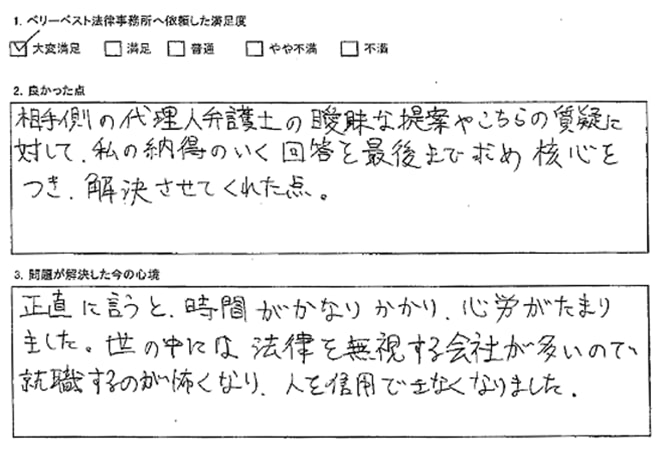 1. ベリーベスト法律事務所へ依頼した満足度
☑ 大変満足 □ 満足 □ 普通 □ やや不満 □ 不満
2. 良かった点
相手側の代理人弁護士の曖昧な提案やこちらの質疑に
対して、私の納得のいく回答を最後まで求め核心を
つき、解決させてくれた点。
3. 問題が解決した今の心境
正直に言うと、時間がかなりかかり、心労がたまり
ました。世の中には法律を無視する会社が多いので、
就職するのが怖くなり、人を信用できなくなりました。